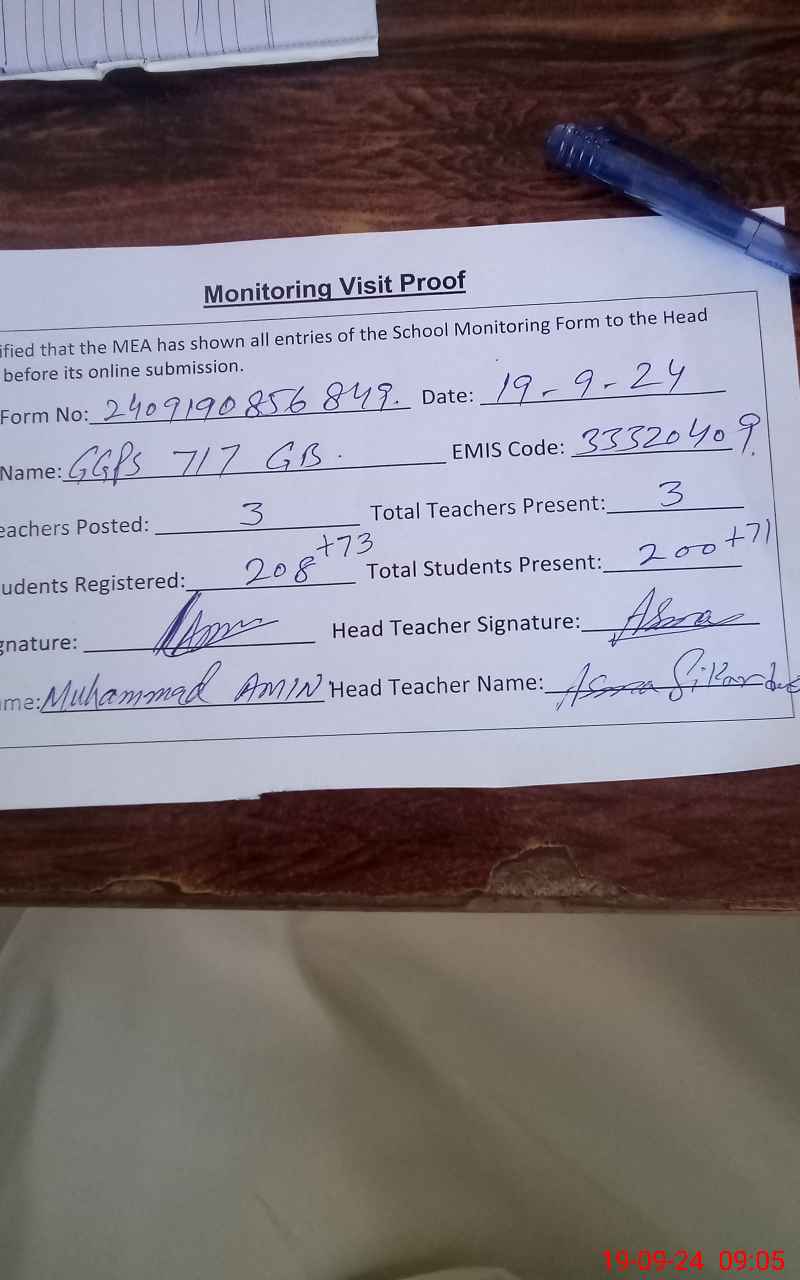 Monitoring Visit Proof
ified that the MEA has shown all entries of the School Monitoring Form to the Head
before its online submission.
Form No: 2409190856849. Date: 19-9-24
Name: GGPS 717 GB. EMIS Code: 33320409.
eachers Posted: 3 Total Teachers Present: 3
udents Registered: 208+73 Total Students Present: 200+71
gnature: Amin Head Teacher Signature: Asma
me: Muhammad AMIN Head Teacher Name: Asma Sikandar
19-09-24 09:05